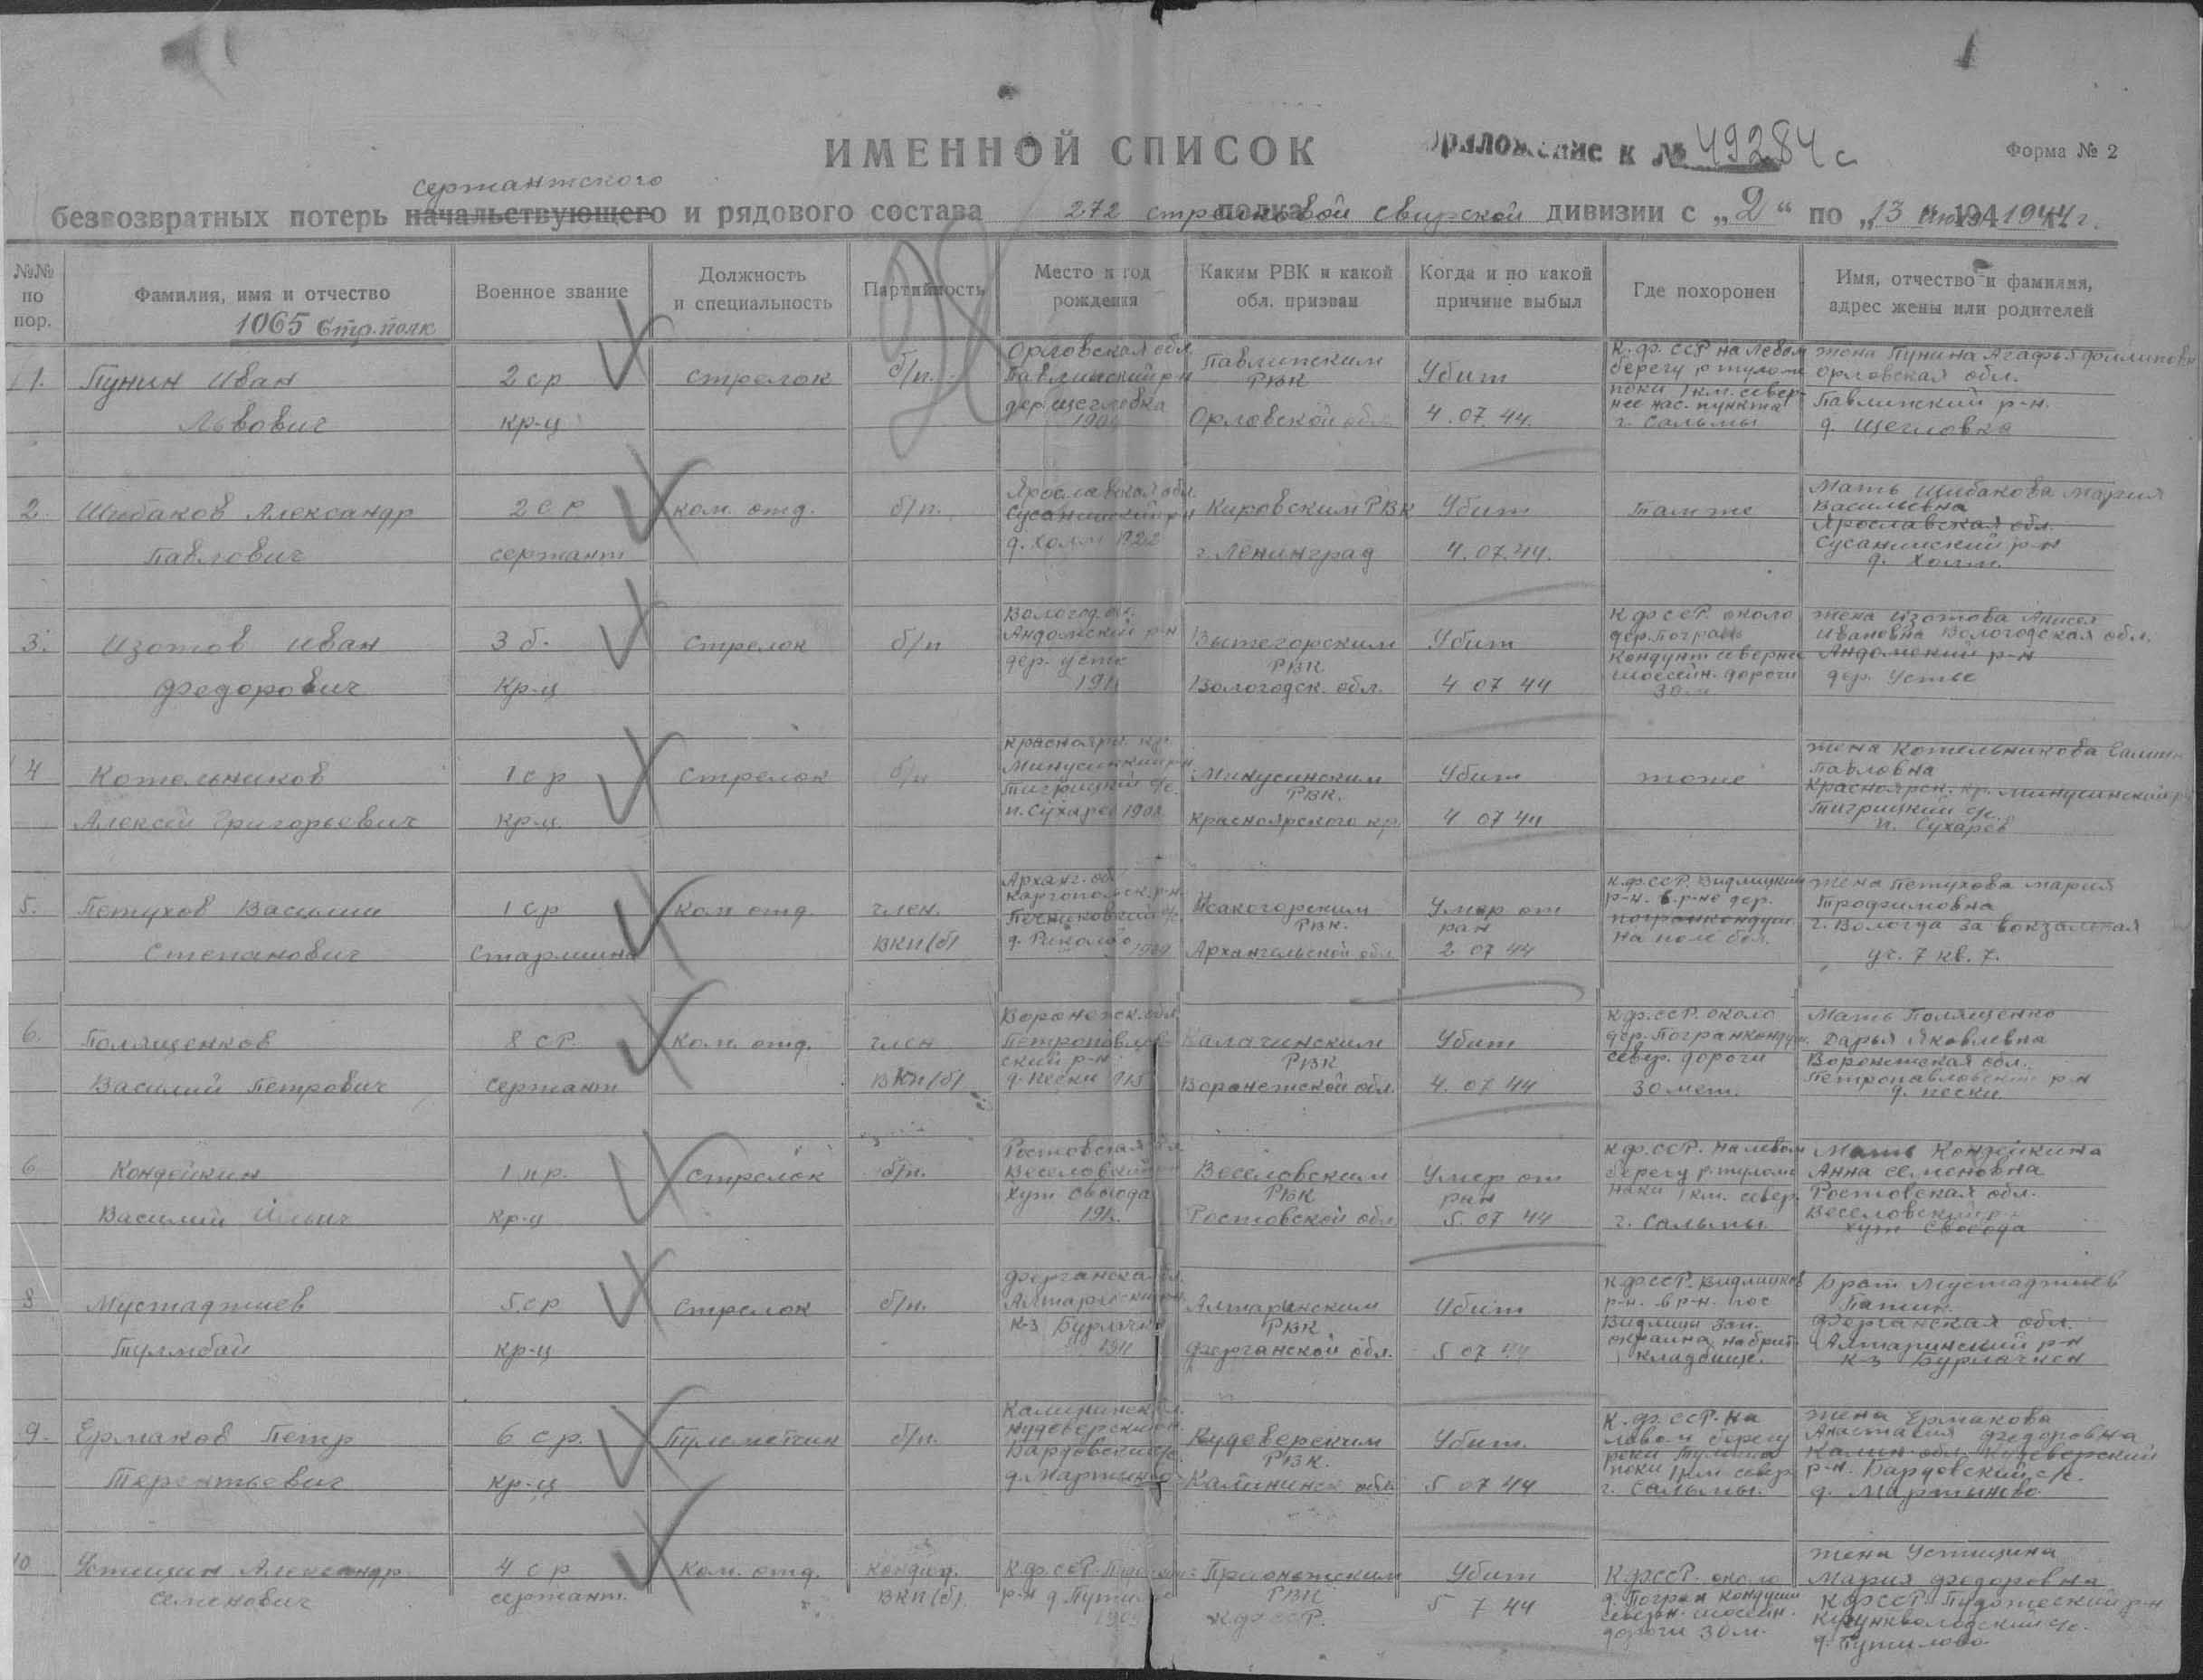 ИМЕННОЙ СПИСОК
Приложение к № 49284с
Форма № 2
сержантского
безвозвратных потерь начальствующего и рядового состава 272 стрелковой Свирской дивизии с „2“ по „13 июля 1944 г.
№№ по пор.
Фамилия, имя и отчество
Военное звание
Должность и специальность
Партийность
Место и год рождения
Каким РВК и какой обл. призван
Когда и по какой причине выбыл
Где похоронен
Имя, отчество и фамилия, адрес жены или родителей
1065 Стр. полк
1. Пунин Иван
Львович
2 ср
кр-ц
Стрелок
б/п.
Орловская обл.
дер. Щегловка
РВК
Орловской обл.
Убит
4.07.44.
К.ф. ССР на левом
берегу р.
1 км. север-
нее нас. пункта
г. Сальмы
жена Пунина Агафья
Орловская обл.
д. Щегловка
2. Шибаков Александр
Павлович
2 ср
сержант
ком. отд.
б/п.
Ярославская обл.
Сусанинский р-н
д. Холм 1922
Кировским РВК
г. Ленинград
Убит
4.07.44.
Там же
Мать Шибакова Мария
Васильевна
Ярославская обл.
Сусанинский р-н
д. Холм.
3. Изотов Иван
Федорович
3 б.
Кр-ц
Стрелок
б/п
Вологод. обл.
Андомский р-н
дер. Устье
1911
Вытегорским
РВК
Вологодск. обл.
Убит
4 07 44
К ф ССР. около
дер. Погран
Кондуши северне
шоссейн. дороги
30 м
жена Изотова
Ивановна Вологодская обл.
Андомский р-н
дер. Устье
4 Котельников
Алексей Григорьевич
1 ср
кр-ц
Стрелок
б/п
Краснояр. кр.
Минусинский р-н
Тигрицкий с/с.
п. Сухарев 1908
Минусинским
РВК.
Красноярского кр.
Убит
4 07 44
тоже
жена Котельникова
Павловна
Красноярск. кр. Минусинский р-н
Тигрицкий с/с.
п. Сухарев
5. Петухов Василий
Степанович
1 ср
Старшина
Ком отд
член.
ВКП(б)
Арханг. обл
Каргопольск. р-н.
Печниковский с/с
1909
Исакогорским
РВК.
Архангельской обл
Умер от
ран
2 07 44
К.ф.ССР. Видлицкий
р-н. в р-не дер.
погранкондуши.
на поле боя.
жена Петухова Мария
Трофимовна
г. Вологда за вокзальная
уч. 7 кв. 7.
6. Полященков
Василий Петрович
8 СР.
сержант
Ком. отд.
член
ВКП(б)
Воронежск. обл
Петропавлов-
ский р-н
д. Пески 915
Калачинским
РВК
Воронежской обл.
Убит
4. 07 44
К ф. ССР. около
дер. Погранкондуши.
север. дороги
30 мет.
Мать Полященко
Дарья Яковлевна
Воронежская обл.
Петропавловский р-н
д. Пески.
6 Кондейкин
Василий Ильич
1 пр.
кр-ц
Стрелок
б/п.
Ростовская обл.
Веселовский р-н
хут Свобода
Веселовским
РВК
Ростовской обл
Умер от
ран
5. 07 44
К ф. ССР. на левом
берегу р.
1 км. север.
г. Сальмы.
Мать Кондейкина
Анна Семеновна
Ростовская обл.
Веселовский р-н
хут Свобода
8 Мустаджиев
Тулмбай
5 ср
кр-ц
Стрелок
б/п.
Ферганская обл.
1911
Алтаринским
РВК.
Ферганской обл.
Убит
5 07 44
К ф ССР. Видлицкий
р-н. в р-н. пос
Видлицы зап.
окраина
кладбище.
Брат Мустаджиев
Ферганская обл.
Алтаринский р-н
9. Ермаков Петр
Терентьевич
6 ср.
кр-ц
Пулеметчик
б/п.
Калининск. обл.
Кудеверский р-н.
Бардовский с/с.
д. Мартыново
Кудеверским
РВК.
Калининск обл.
Убит.
5 07 44
К. ф. ССР. на
левом берегу
реки
1 км север
г. Сальмы.
жена Ермакова
Анастасия Федоровна
Калин. обл. Кудеверский
р-н. Бардовский с/с.
д. Мартыново.
10 Устицин Александр
Семенович
4 ср
сержант.
Ком. отд.
кондид.
ВКП(б)
К ф. ССР.
1909
РВК
К ф ССР.
Убит
5 7 44
К ф ССР. около
д. Погран Кондуши
северн. шоссейн.
дороги 30 м.
жена Устицина
Мария Федоровна
К ф ССР. Пудожский р-н
д. Путилово